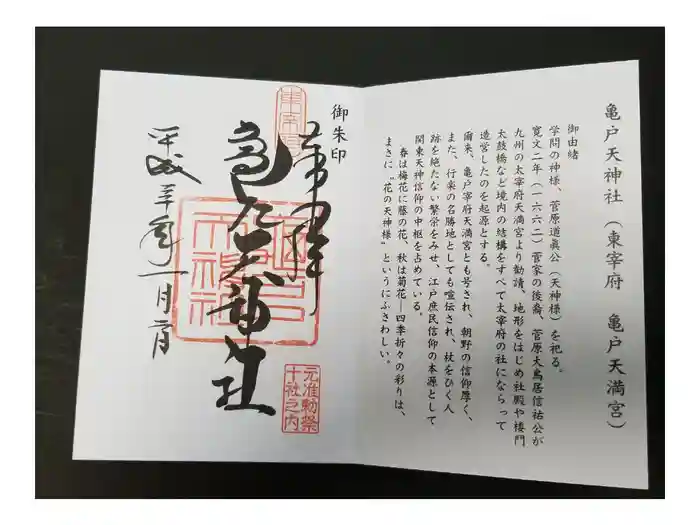 亀戸天神社（東宰府　亀戸天満宮）
御由緒
学問の神様、菅原道眞公（天神様）を祀る。
寛文二年（一六六二）菅家の後裔、菅原大鳥居信祐公が
九州の太宰府天満宮より勧請、地形をはじめ社殿や楼門
太鼓橋など境内の結構をすべて太宰府の社にならって
造営したのを起源とする。
爾来、亀戸宰府天満宮とも号され、朝野の信仰厚く、
また、行楽の名勝地としても喧伝され、杖をひく人
跡を絶たない繁栄をみせ、江戸庶民信仰の本源として
関東天神信仰の中枢を占めている。
春は梅花に藤の花、秋は菊花―四季折々の彩りは、
まさに“花の天神様”というにふさわしい。
御朱印
奉拝
亀戸天神社
平成三十年一月二日
東宰府
元准勅祭
十社之内